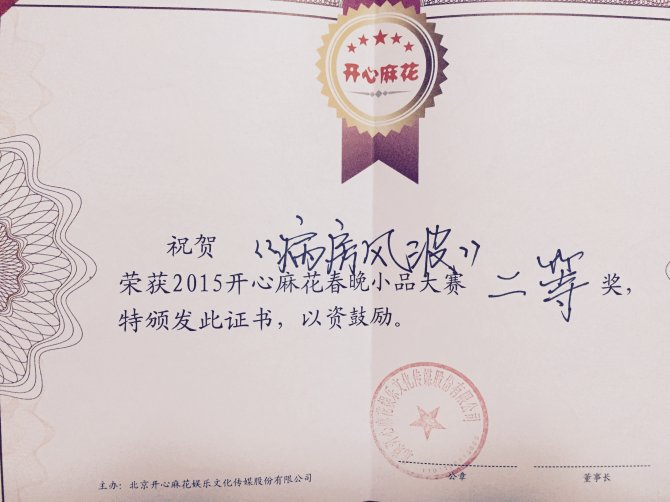 开心麻花
祝贺 《病房风波》
荣获2015开心麻花春晚小品大赛 二等 奖，
特颁发此证书，以资鼓励。
北京开心麻花娱乐文化传媒股份有限公司
主办：北京开心麻花娱乐文化传媒股份有限公司
公章
董事长